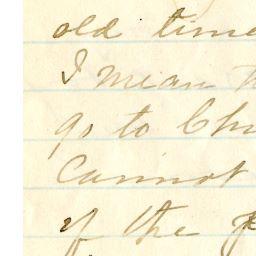 old time
I mean
go to Ch
cannot
of the